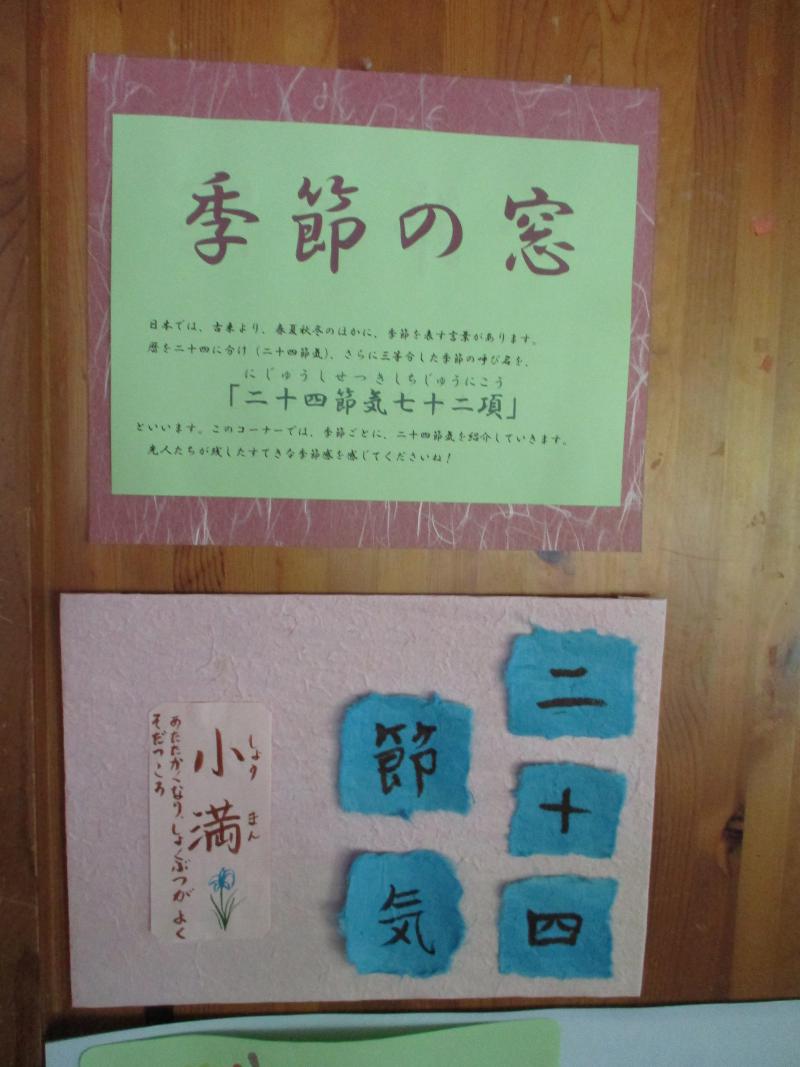 季節の窓
日本では、古来より、春夏秋冬のほかに、季節を表す言葉があります。
暦を二十四に分け（二十四節気）、さらに三等分した季節の呼び名を、
にじゅうしせつきしちじゅうにこう
「二十四節気七十二項」
といいます。このコーナーでは、季節ごとに、二十四節気を紹介していきます。
先人たちが残したすてきな季節感を感じてくださいね！
二十四
節気
しょう まん
小満
あたたかくなり、しょくぶつが よく
そだつころ